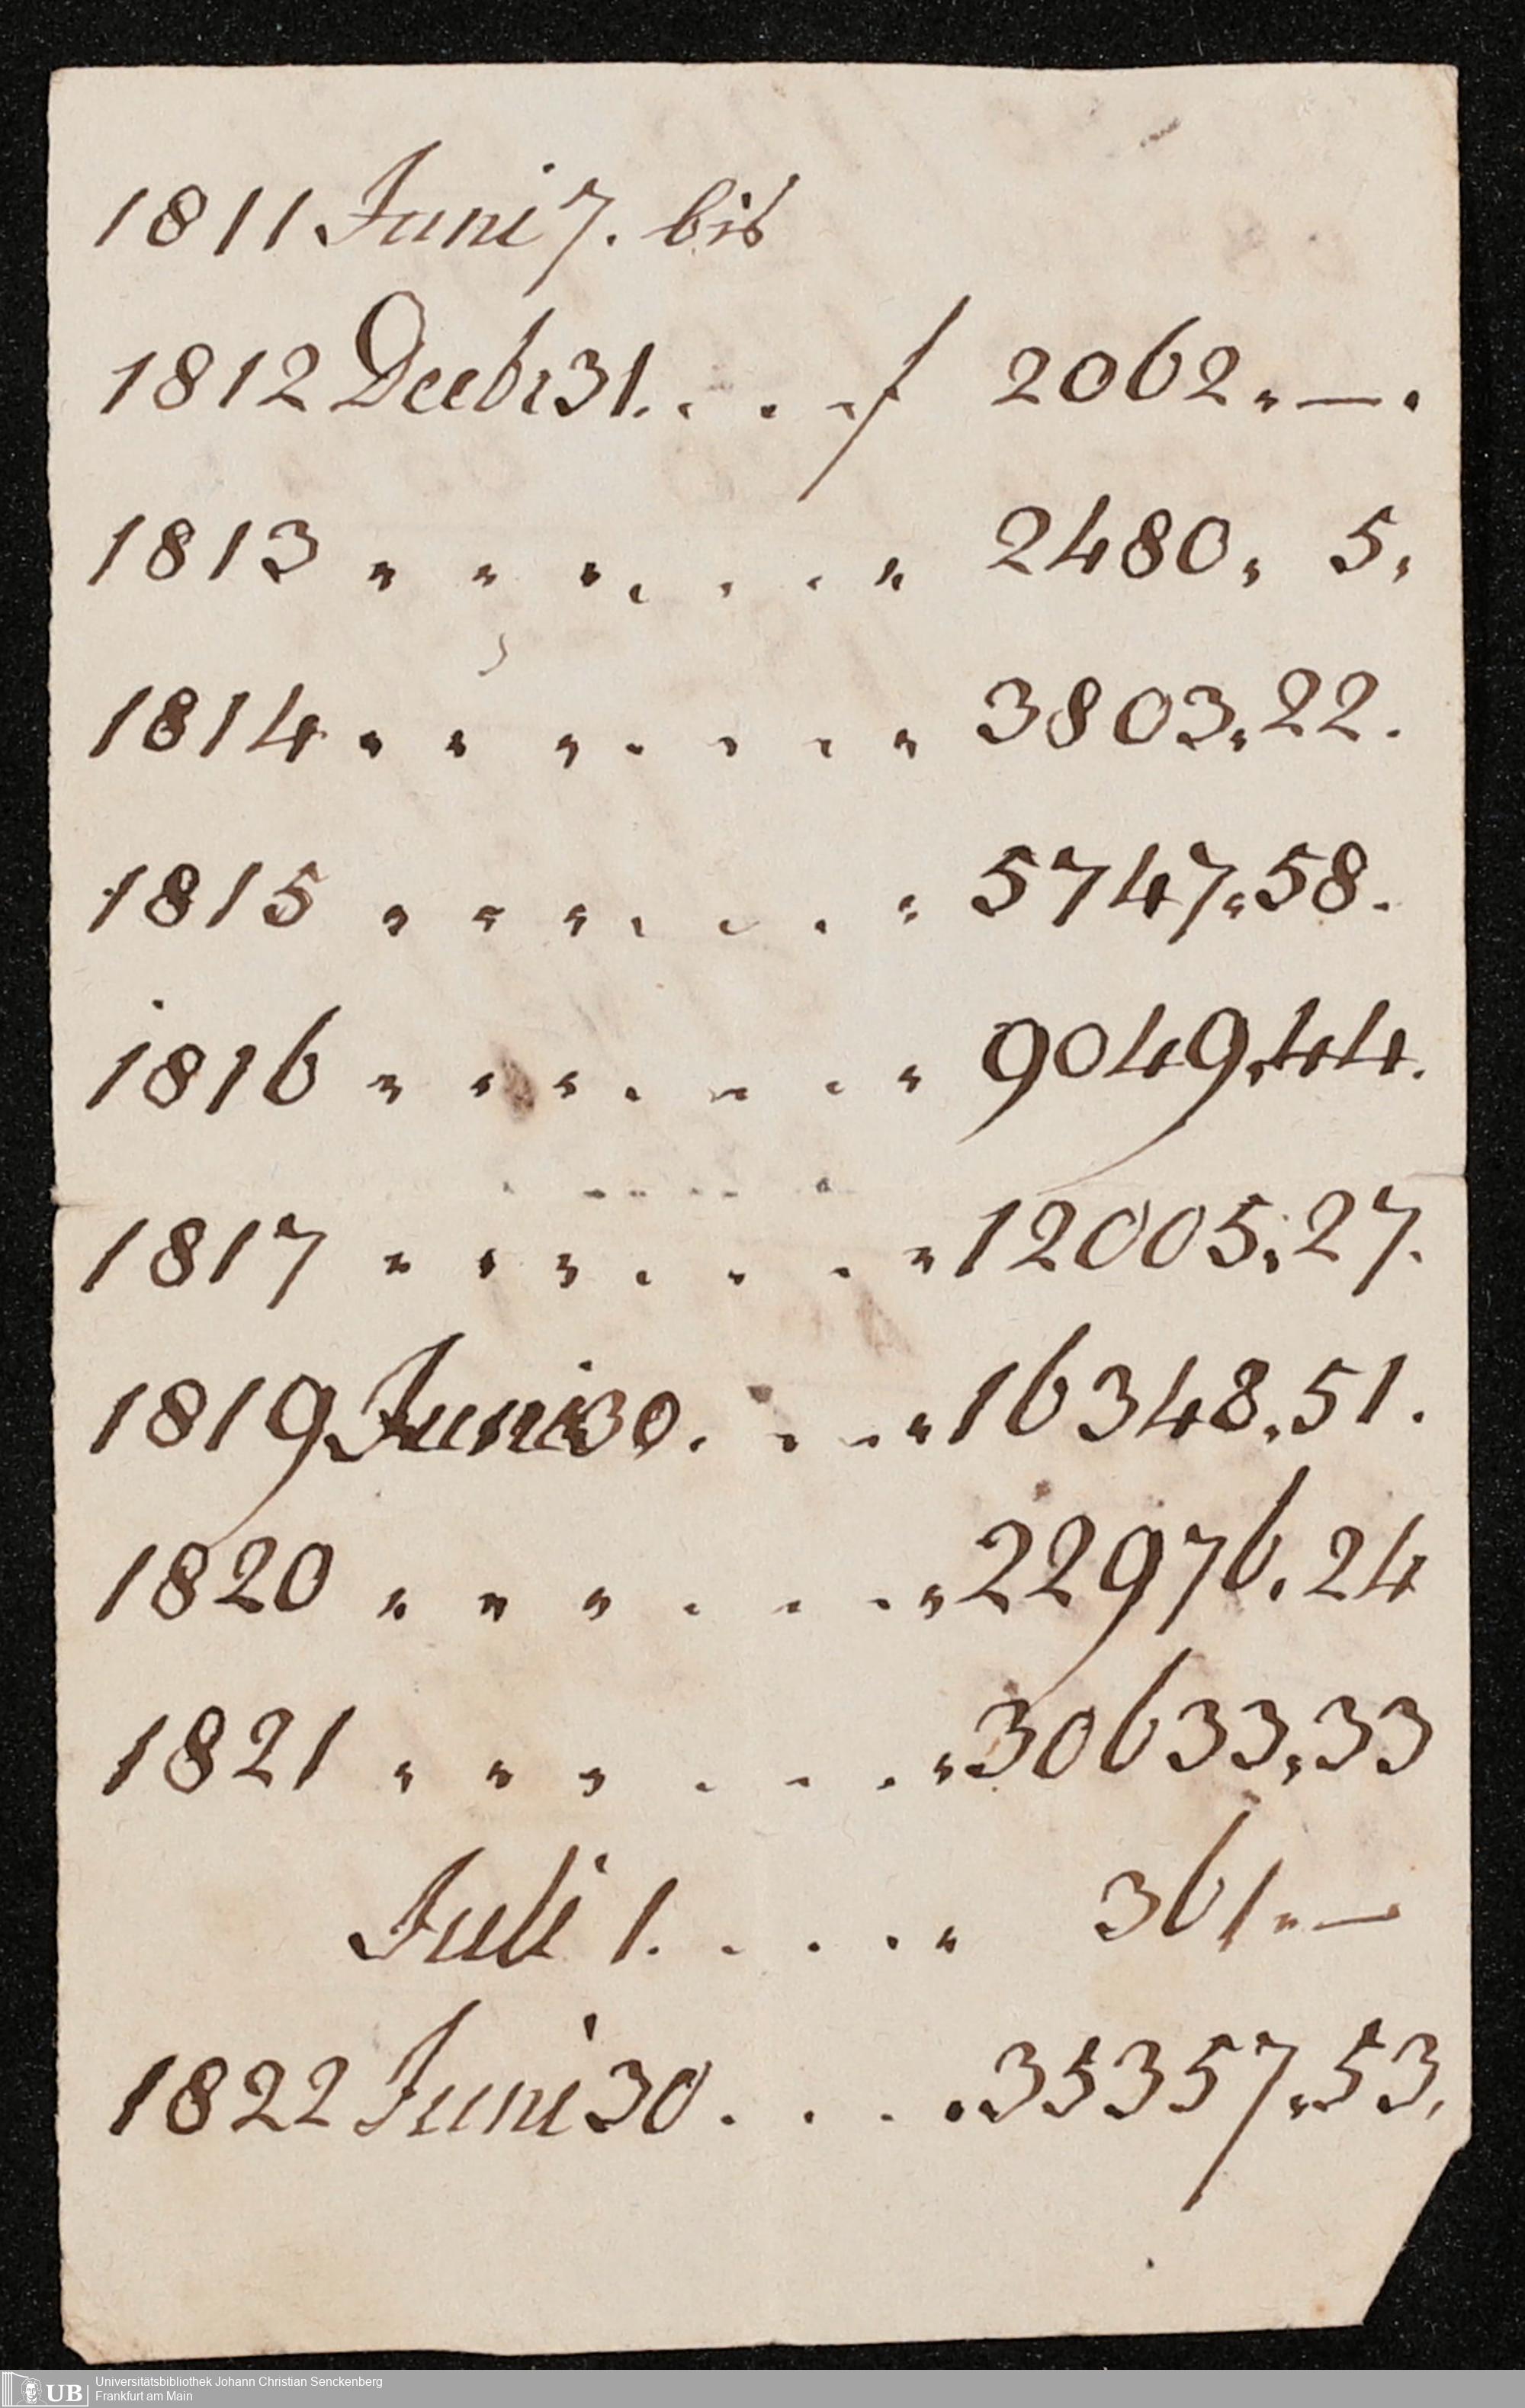 1811 Juni 7. bis
1812 Decbr 31. . . . f 2062 „ — .
1813 „ „ „ . . . „ 2480 „ 5 „
1814 „ „ „ . . . „ 3803 „ 22 .
1815 „ „ „ . . . „ 5747 „ 58 .
1816 „ „ „ . . . „ 9049 „ 44 .
1817 „ „ „ . . . „ 12005 „ 27 .
1819 Juni 30 . . . „ 16348 „ 51 .
1820 „ „ „ . . . „ 22976 . 24
1821 „ „ „ . . . „ 30633 „ 33
Juli 1 . . . . „ 361 „ —
1822 Juni 30 . . . „ 35357 „ 53 ,
UB Universitätsbibliothek Johann Christian Senckenberg
Frankfurt am Main